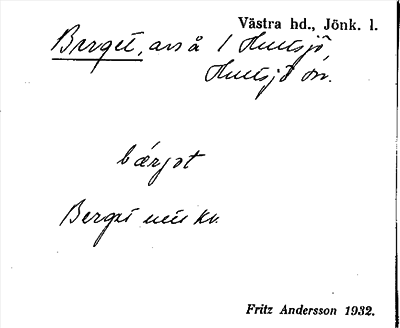 Västra hd., Jönk. l.
Berget, avs å 1 Hultsjö,
Hultsjö sn.
bærjət
Berget
Fritz Andersson 1932.